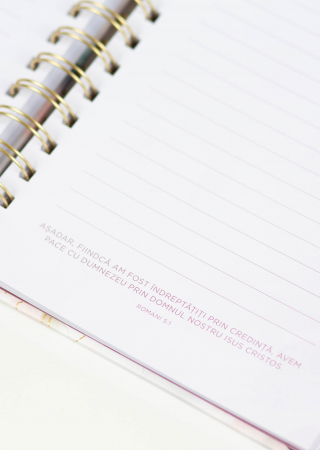 AȘADAR, FIINDCĂ AM FOST ÎNDREPTĂȚIȚI PRIN CREDINȚĂ, AVEM
PACE CU DUMNEZEU PRIN DOMNUL NOSTRU ISUS CRISTOS.
ROMANI 5:1